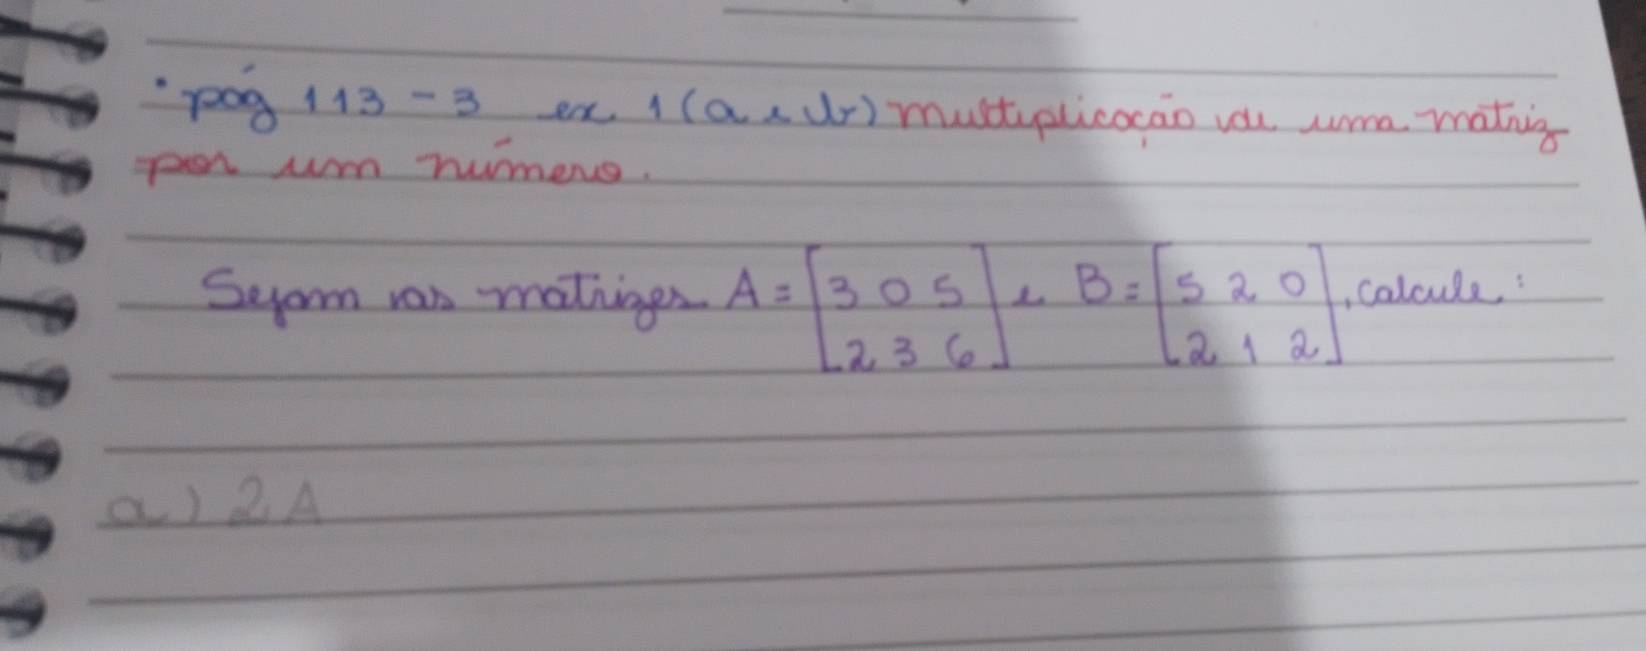 • pág 113 - 3 ex 1 (a e b) multiplicação de uma matriz
por um número.
Sejam as matrizes A = [3 0 5 e B = [5 2 0], calcule:
2 3 6] [2 1 2]
a) 2A